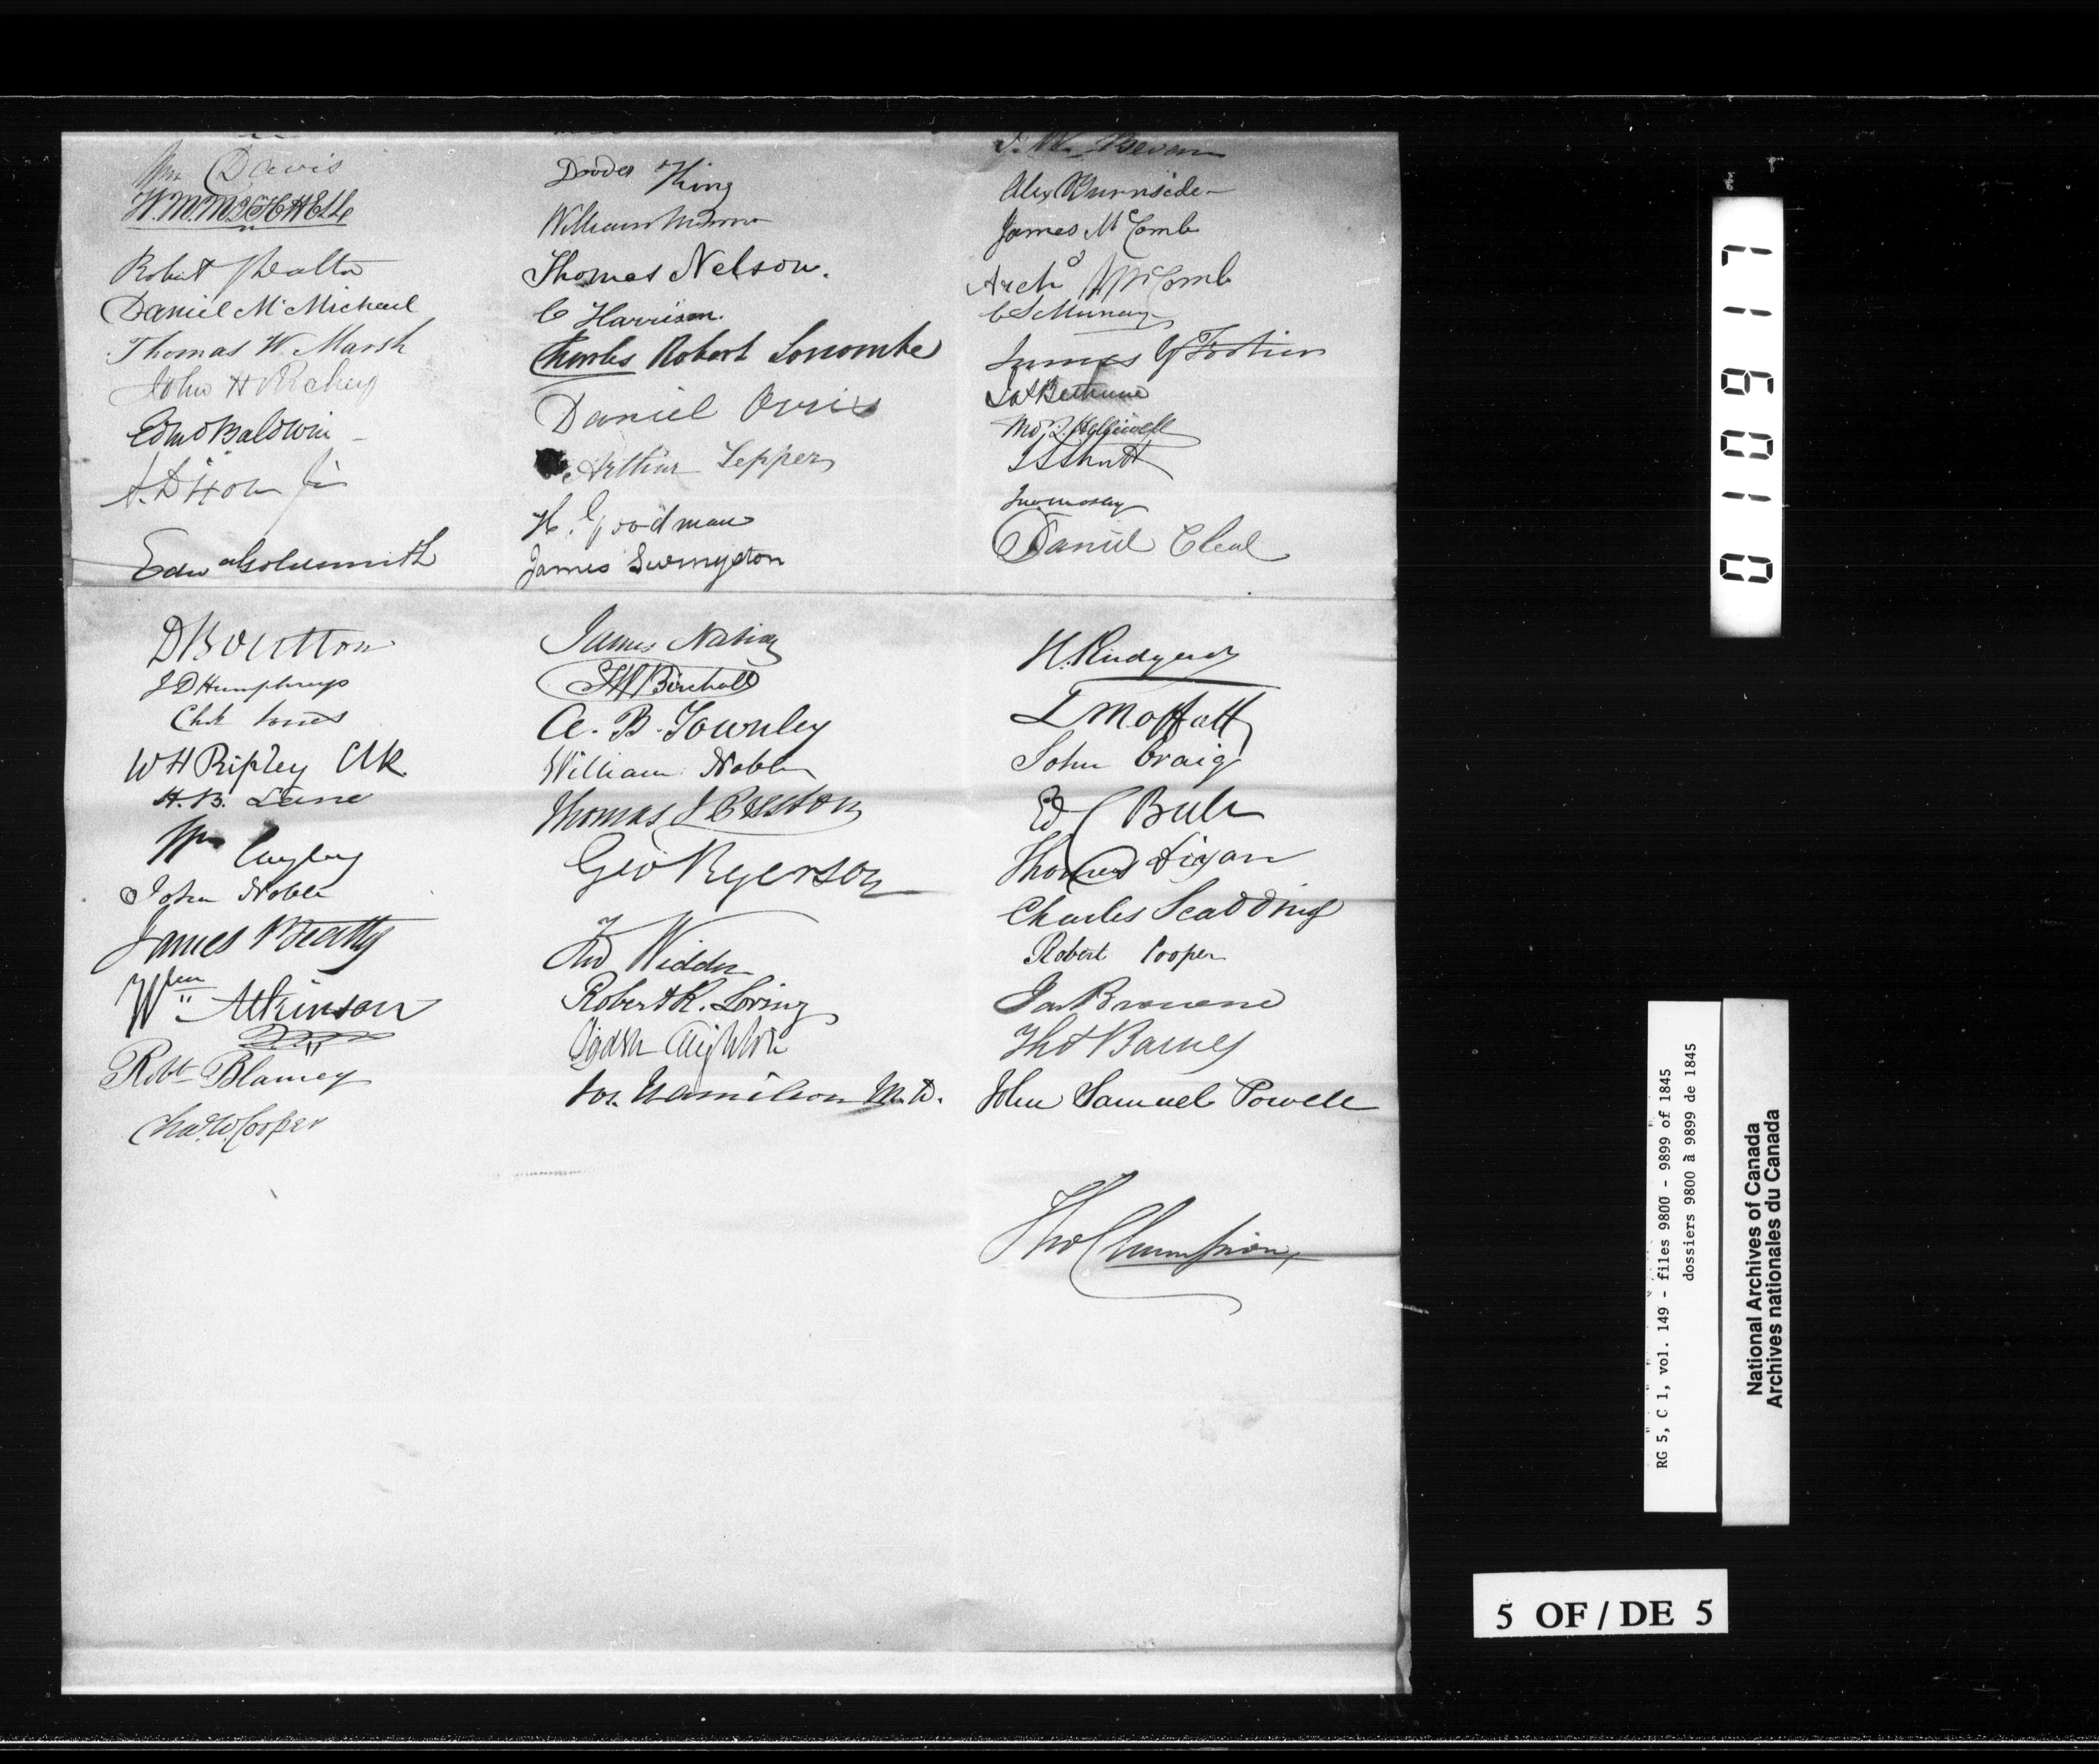 Wm Davis
Robert Walton
Daniel McMichael
Thomas W. Marsh
John H Richey
Edmd Baldwin
A. Dixon Jr
Edw Goldsmith
D Boulton
J D Humphreys
Chs Jones
W H Ripley Clk
H. B. Lane
Wm Cayley
John Noble
James Beatty
Wm Atkinson
Robt Blamey
Chas. W. Cooper
King
William
Thomas Nelson.
C Harrison.
Charles Robert
Daniel Orris
Arthur Lepper
H. Goodman
James Livingston
James Nation
Birchall
A. B. Townley
William Noble
Thomas J Preston
Geo Ryerson
Widder
Robert R. Loring
Ogden Creighton
Jos. Hamilton M.D.
Bevan
Alex Burnside
James McComb
Archd McComb
C S Murray
James G
Jas Bethune
Daniel Cleal
H. Rudyerd
L Moffatt
John Craig
Ed C Bull
Thomas
Charles Scadding
Robert Cooper
Jas Browne
Thos Barnes
John Samuel Powell
Thos Champion
010917
RG 5, C 1, vol. 149 - files 9800 - 9899 of 1845
dossiers 9800 à 9899 de 1845
National Archives of Canada
Archives nationales du Canada
5 OF / DE 5